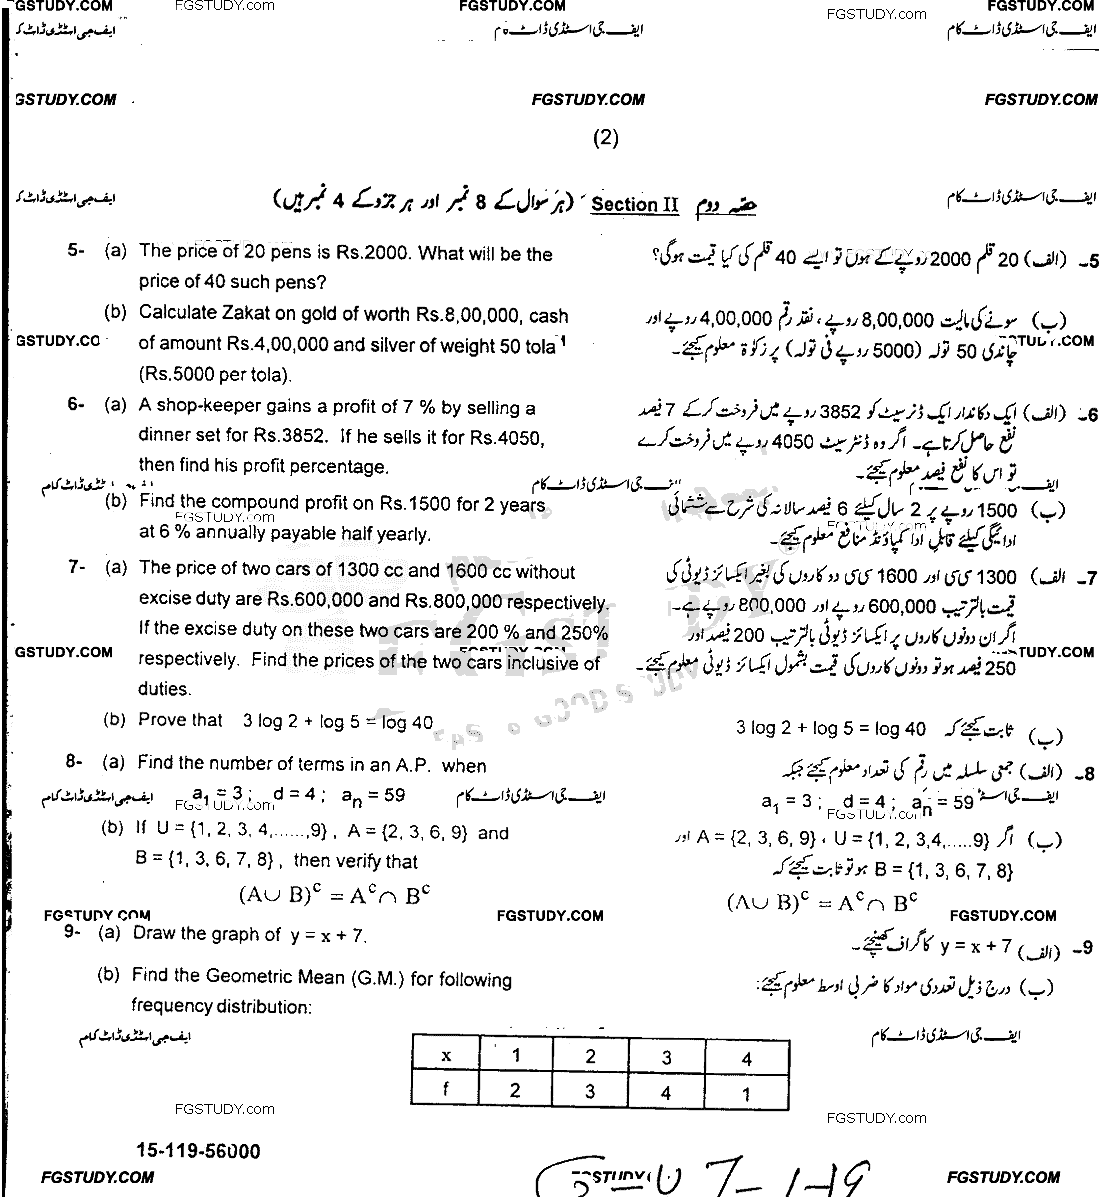 GSTUDY.COM FGSTUDY.com FGSTUDY.COM FGSTUDY.com FGSTUDY.COM
ایف جی اسٹڈی ڈاٹ ایف جی اسٹڈی ڈاٹ ایف جی اسٹڈی ڈاٹ کام
GSTUDY.COM FGSTUDY.COM FGSTUDY.COM
(2)
ایف جی اسٹڈی ڈاٹ حصہ دوم Section II (ہر سوال کے 8 نمبر اور ہر جزو کے 4 نمبر ہیں) ایف جی اسٹڈی ڈاٹ کام
5- (a) The price of 20 pens is Rs.2000. What will be the
price of 40 such pens?
(b) Calculate Zakat on gold of worth Rs.8,00,000, cash
GSTUDY.CO of amount Rs.4,00,000 and silver of weight 50 tola
(Rs.5000 per tola).
6- (a) A shop-keeper gains a profit of 7 % by selling a
dinner set for Rs.3852. If he sells it for Rs.4050,
then find his profit percentage.
(b) Find the compound profit on Rs.1500 for 2 years
FGSTUDY.com
at 6 % annually payable half yearly.
7- (a) The price of two cars of 1300 cc and 1600 cc without
excise duty are Rs.600,000 and Rs.800,000 respectively.
If the excise duty on these two cars are 200 % and 250%
GSTUDY.COM respectively. Find the prices of the two cars inclusive of
duties.
(b) Prove that 3 log 2 + log 5 = log 40
8- (a) Find the number of terms in an A.P. when
a₁ = 3 ; d = 4 ; aₙ = 59
(b) If U = {1, 2, 3, 4,......,9} , A = {2, 3, 6, 9} and
B = {1, 3, 6, 7, 8} , then verify that
(A∪ B)ᶜ = Aᶜ∩ Bᶜ
9- (a) Draw the graph of y = x + 7.
(b) Find the Geometric Mean (G.M.) for following
frequency distribution:
5۔ (الف) 20 قلم 2000 روپے کے ہوں تو ایسے 40 قلم کی کیا قیمت ہوگی؟
(ب) سونے کی مالیت 8,00,000 روپے ، نقد رقم 4,00,000 روپے اور
چاندی 50 تولہ (5000 روپے فی تولہ) پر زکوٰۃ معلوم کیجئے۔
6۔ (الف) ایک دکاندار ایک ڈنر سیٹ کو 3852 روپے میں فروخت کر کے 7 فیصد
نفع حاصل کرتا ہے۔ اگر وہ ڈنر سیٹ 4050 روپے میں فروخت کرے
تو اس کا نفع فیصد معلوم کیجئے۔
(ب) 1500 روپے پر 2 سال کیلئے 6 فیصد سالانہ کی شرح سے ششماہی
ادائیگی کیلئے قابلِ ادا کمپاؤنڈ منافع معلوم کیجئے۔
7۔ (الف) 1300 سی سی اور 1600 سی سی دو کاروں کی بغیر ایکسائز ڈیوٹی کی
قیمت بالترتیب 600,000 روپے اور 800,000 روپے ہے۔
اگر ان دونوں کاروں پر ایکسائز ڈیوٹی بالترتیب 200 فیصد اور
250 فیصد ہو تو دونوں کاروں کی قیمت بشمول ایکسائز ڈیوٹی معلوم کیجئے۔
(ب) ثابت کیجئے کہ 3 log 2 + log 5 = log 40
8۔ (الف) جمعی سلسلہ میں رقم کی تعداد معلوم کیجئے جبکہ
a₁ = 3 ; d = 4 ; aₙ = 59
(ب) اگر U = {1, 2, 3,4,.....9} ، A = {2, 3, 6, 9} اور
B = {1, 3, 6, 7, 8} ہو تو ثابت کیجئے کہ
(A∪ B)ᶜ = Aᶜ∩ Bᶜ
FGSTUDY.COM FGSTUDY.COM FGSTUDY.COM
9۔ (الف) y = x + 7 کا گراف کھینچئے۔
(ب) درج ذیل تعددی مواد کا ضربی اوسط معلوم کیجئے:
ایف جی اسٹڈی ڈاٹ کام ایف جی اسٹڈی ڈاٹ کام
x 1 2 3 4
f 2 3 4 1
FGSTUDY.com FGSTUDY.com
15-119-56000
FGSTUDY.COM FGSTUDY.COM